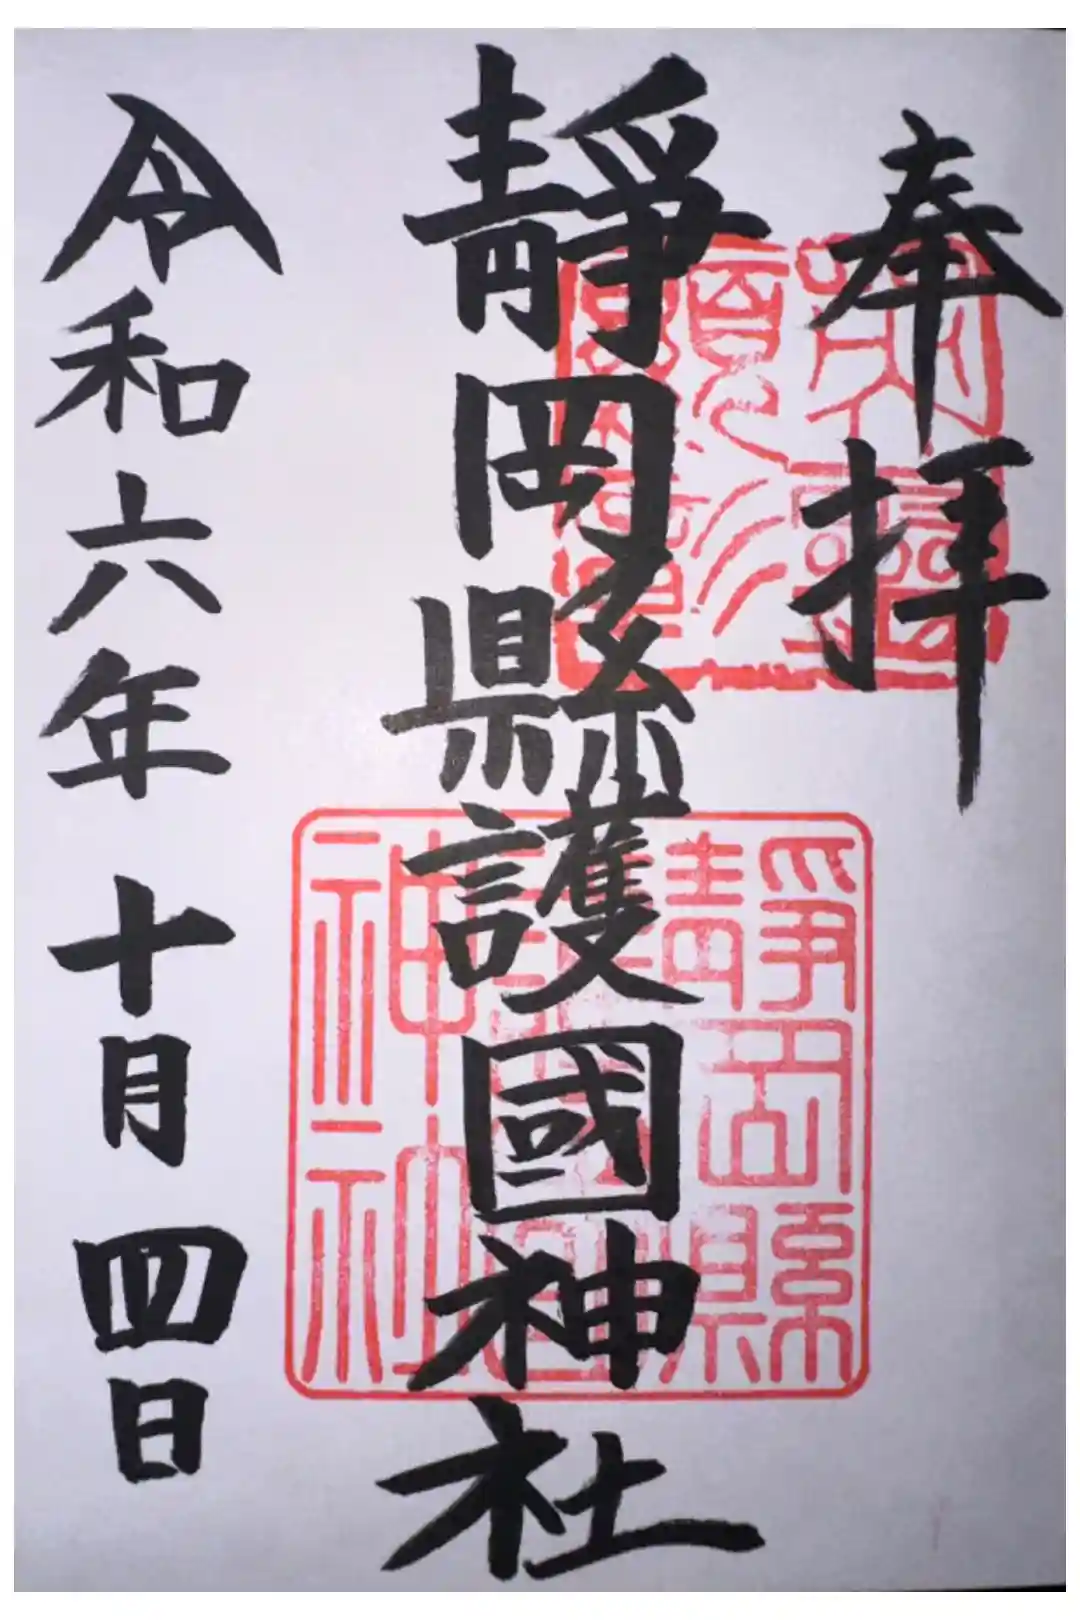 奉拝
靜岡縣護國神社
令和六年十月四日
靜岡縣
護國
神社